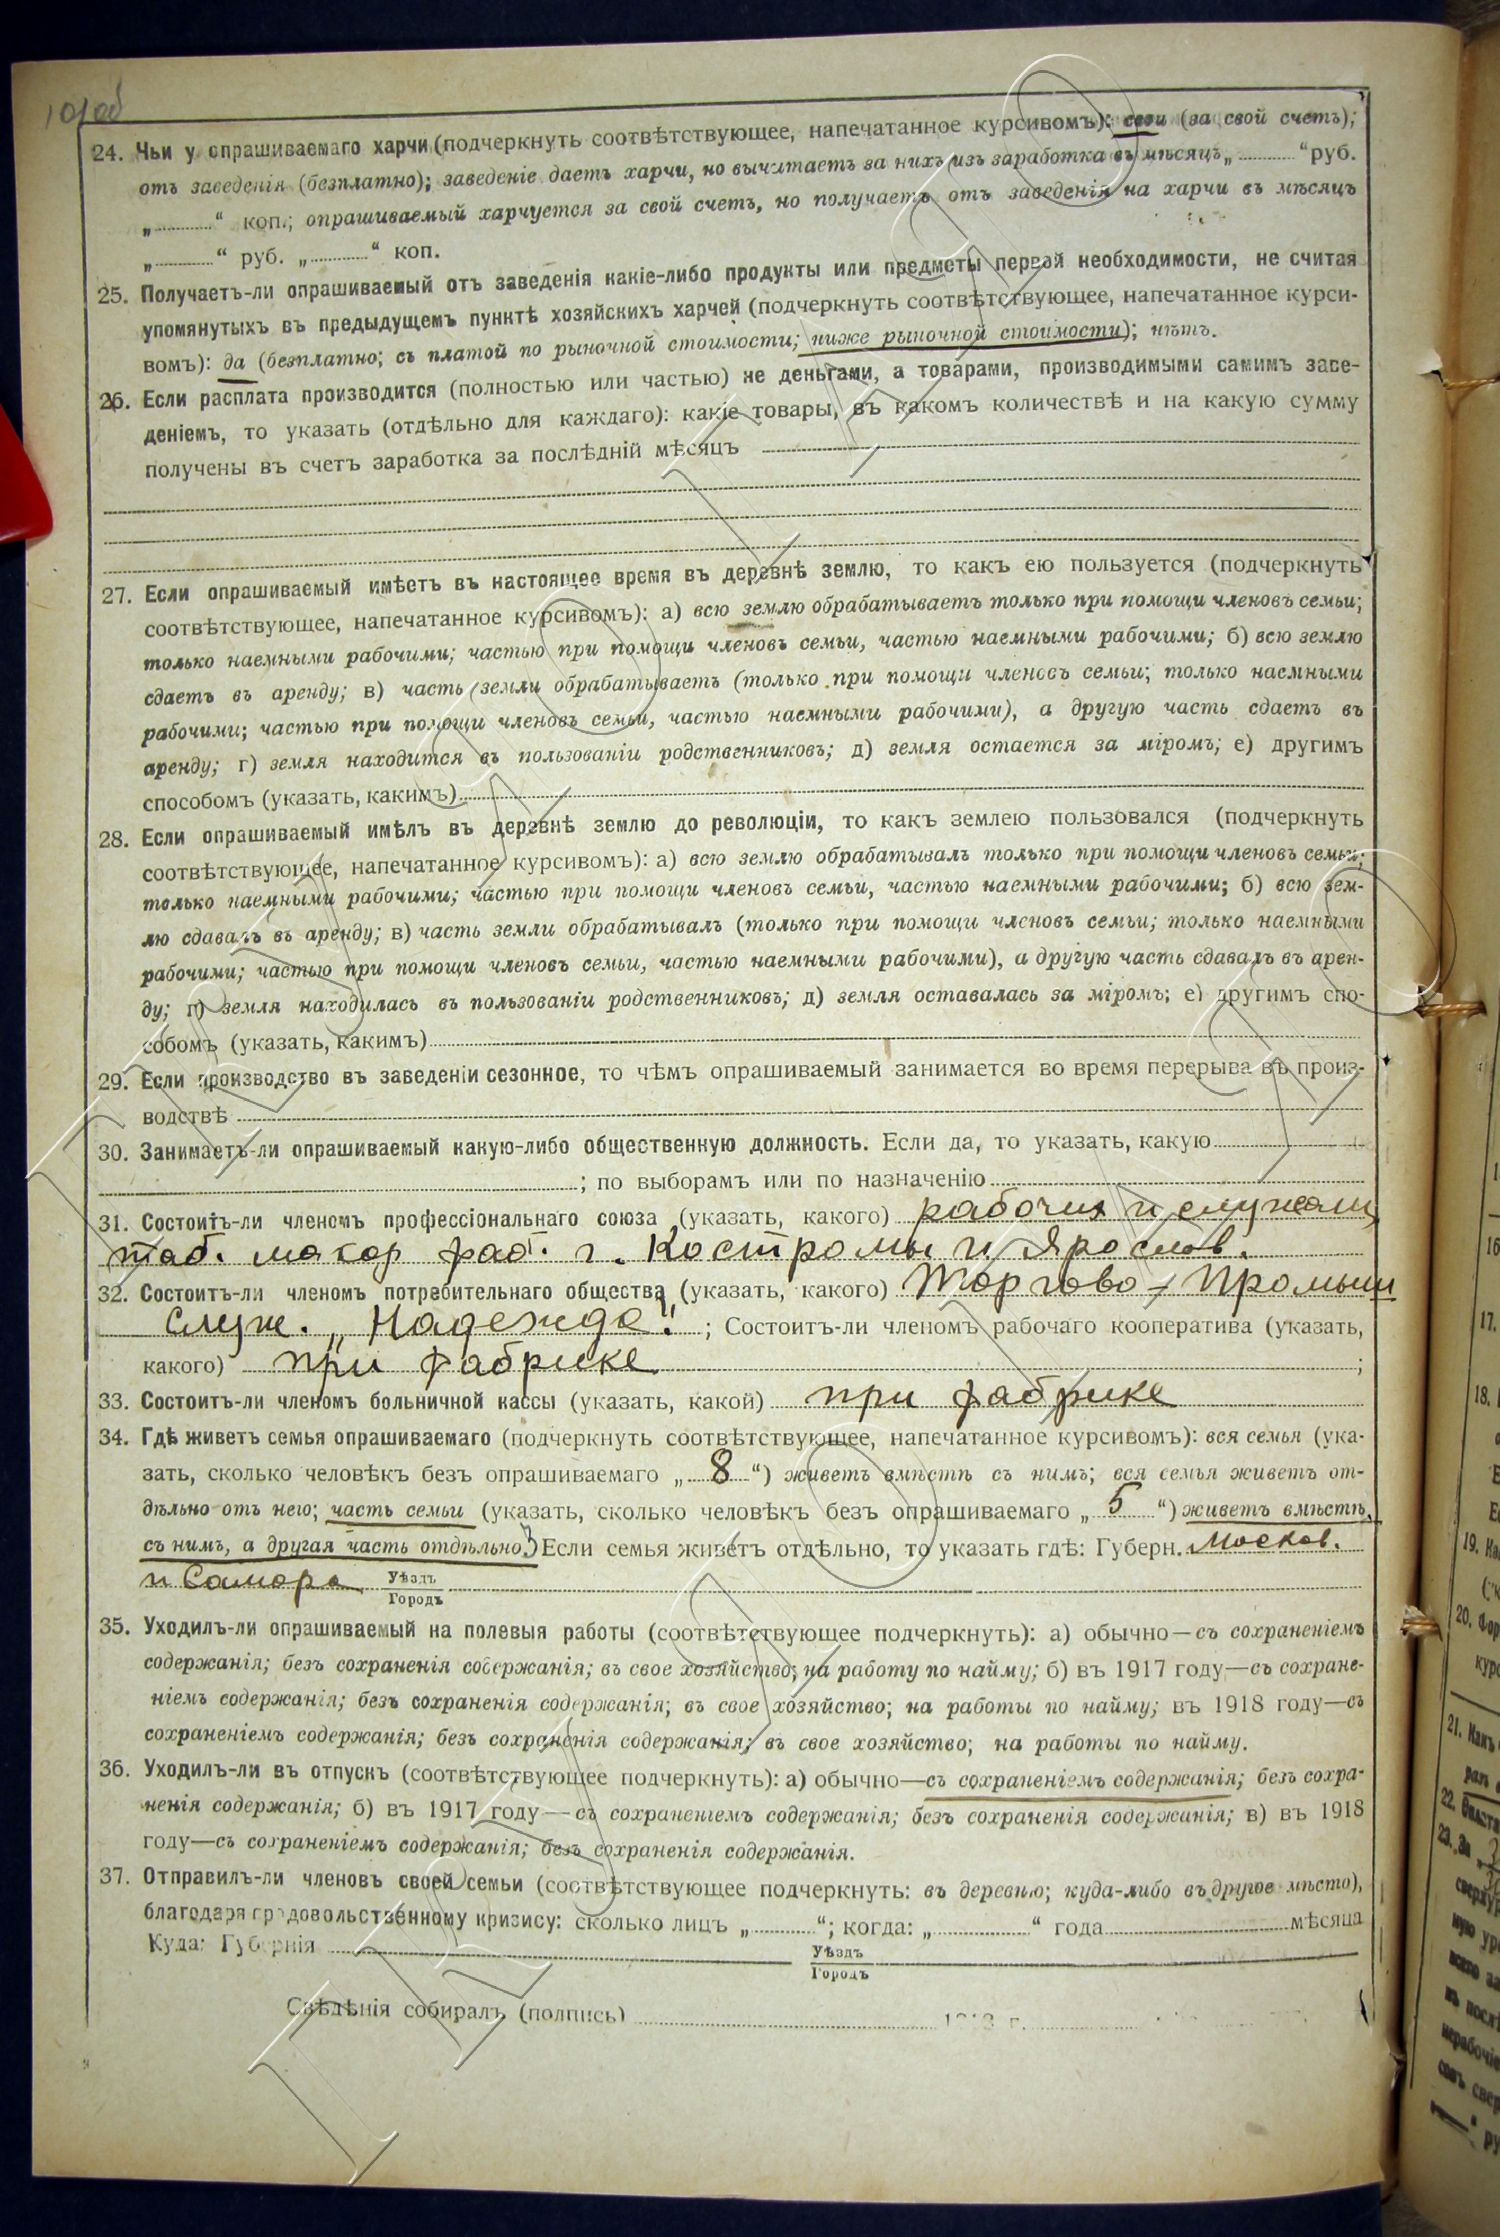 101об
24. Чьи у опрашиваемаго харчи (подчеркнуть соотвѣтствующее, напечатанное курсивомъ): свои (за свой счетъ);
отъ заведенія (безплатно); заведеніе даетъ харчи, но вычитаетъ за нихъ изъ заработка въ мѣсяцъ „..........“ руб.
„..........“ коп.; опрашиваемый харчуется за свой счетъ, но получаетъ отъ заведенія на харчи въ мѣсяцъ
„..........“ руб. „..........“ коп.
25. Получаетъ-ли опрашиваемый отъ заведенія какіе-либо продукты или предметы первой необходимости, не считая
упомянутыхъ въ предыдущемъ пунктѣ хозяйскихъ харчей (подчеркнуть соотвѣтствующее, напечатанное курси-
вомъ): да (безплатно; съ платой по рыночной стоимости; ниже рыночной стоимости); нѣтъ.
26. Если расплата производится (полностью или частью) не деньгами, а товарами, производимыми самимъ заве-
деніемъ, то указать (отдѣльно для каждаго): какіе товары, въ какомъ количествѣ и на какую сумму
получены въ счетъ заработка за послѣдній мѣсяцъ
27. Если опрашиваемый имѣетъ въ настоящее время въ деревнѣ землю, то какъ ею пользуется (подчеркнуть
соотвѣтствующее, напечатанное курсивомъ): а) всю землю обрабатываетъ только при помощи членовъ семьи;
только наемными рабочими; частью при помощи членовъ семьи, частью наемными рабочими; б) всю землю
сдаетъ въ аренду; в) часть земли обрабатываетъ (только при помощи членовъ семьи; только наемными
рабочими; частью при помощи членовъ семьи, частью наемными рабочими), а другую часть сдаетъ въ
аренду; г) земля находится въ пользованіи родственниковъ; д) земля остается за міромъ; е) другимъ
способомъ (указать, какимъ)
28. Если опрашиваемый имѣлъ въ деревнѣ землю до революціи, то какъ землею пользовался (подчеркнуть
соотвѣтствующее, напечатанное курсивомъ): а) всю землю обрабатывалъ только при помощи членовъ семьи;
только наемными рабочими; частью при помощи членовъ семьи, частью наемными рабочими; б) всю зем-
лю сдавалъ въ аренду; в) часть земли обрабатывалъ (только при помощи членовъ семьи; только наемными
рабочими; частью при помощи членовъ семьи, частью наемными рабочими), а другую часть сдавалъ въ арен-
ду; г) земля находилась въ пользованіи родственниковъ; д) земля оставалась за міромъ; е) другимъ спо-
собомъ (указать, какимъ)
29. Если производство въ заведеніи сезонное, то чѣмъ опрашиваемый занимается во время перерыва въ произ-
водствѣ
30. Занимаетъ-ли опрашиваемый какую-либо общественную должность. Если да, то указать, какую
; по выборамъ или по назначенію
31. Состоитъ-ли членомъ профессіональнаго союза (указать, какого) рабочих и служащ
таб. махор фаб. г. Костромы и Ярослов.
32. Состоитъ-ли членомъ потребительнаго общества (указать, какого) Торгово-Промыш
служ. „Надежда“ ; Состоитъ-ли членомъ рабочаго кооператива (указать,
какого) при фабрике ;
33. Состоитъ-ли членомъ больничной кассы (указать, какой) при фабрике
34. Гдѣ живетъ семья опрашиваемаго (подчеркнуть соотвѣтствующее, напечатанное курсивомъ): вся семья (ука-
зать, сколько человѣкъ безъ опрашиваемаго „ 8 “) живетъ вмѣстѣ съ нимъ; вся семья живетъ от-
дѣльно отъ него; часть семьи (указать, сколько человѣкъ безъ опрашиваемаго „ 5 “) живетъ вмѣстѣ
съ нимъ, а другая часть отдѣльно. 3) Если семья живетъ отдѣльно, то указать гдѣ: Губерн. Москов.
и Самора Уѣздъ
Городъ
35. Уходилъ-ли опрашиваемый на полевыя работы (соотвѣтствующее подчеркнуть): а) обычно—съ сохраненіемъ
содержанія; безъ сохраненія содержанія; въ свое хозяйство; на работу по найму; б) въ 1917 году—съ сохране-
ніемъ содержанія; безъ сохраненія содержанія; въ свое хозяйство; на работы по найму; въ 1918 году—съ
сохраненіемъ содержанія; безъ сохраненія содержанія; въ свое хозяйство; на работы по найму.
36. Уходилъ-ли въ отпускъ (соотвѣтствующее подчеркнуть): а) обычно—съ сохраненіемъ содержанія; безъ сохра-
ненія содержанія; б) въ 1917 году—съ сохраненіемъ содержанія; безъ сохраненія содержанія; в) въ 1918
году—съ сохраненіемъ содержанія; безъ сохраненія содержанія.
37. Отправилъ-ли членовъ своей семьи (соотвѣтствующее подчеркнуть: въ деревню; куда-либо въ другое мѣсто),
благодаря продовольственному кризису: сколько лицъ „..........“; когда: „..........“ года мѣсяца
Куда: Губернія Уѣздъ
Городъ
Свѣдѣнія собиралъ (подпись) 1918 г.